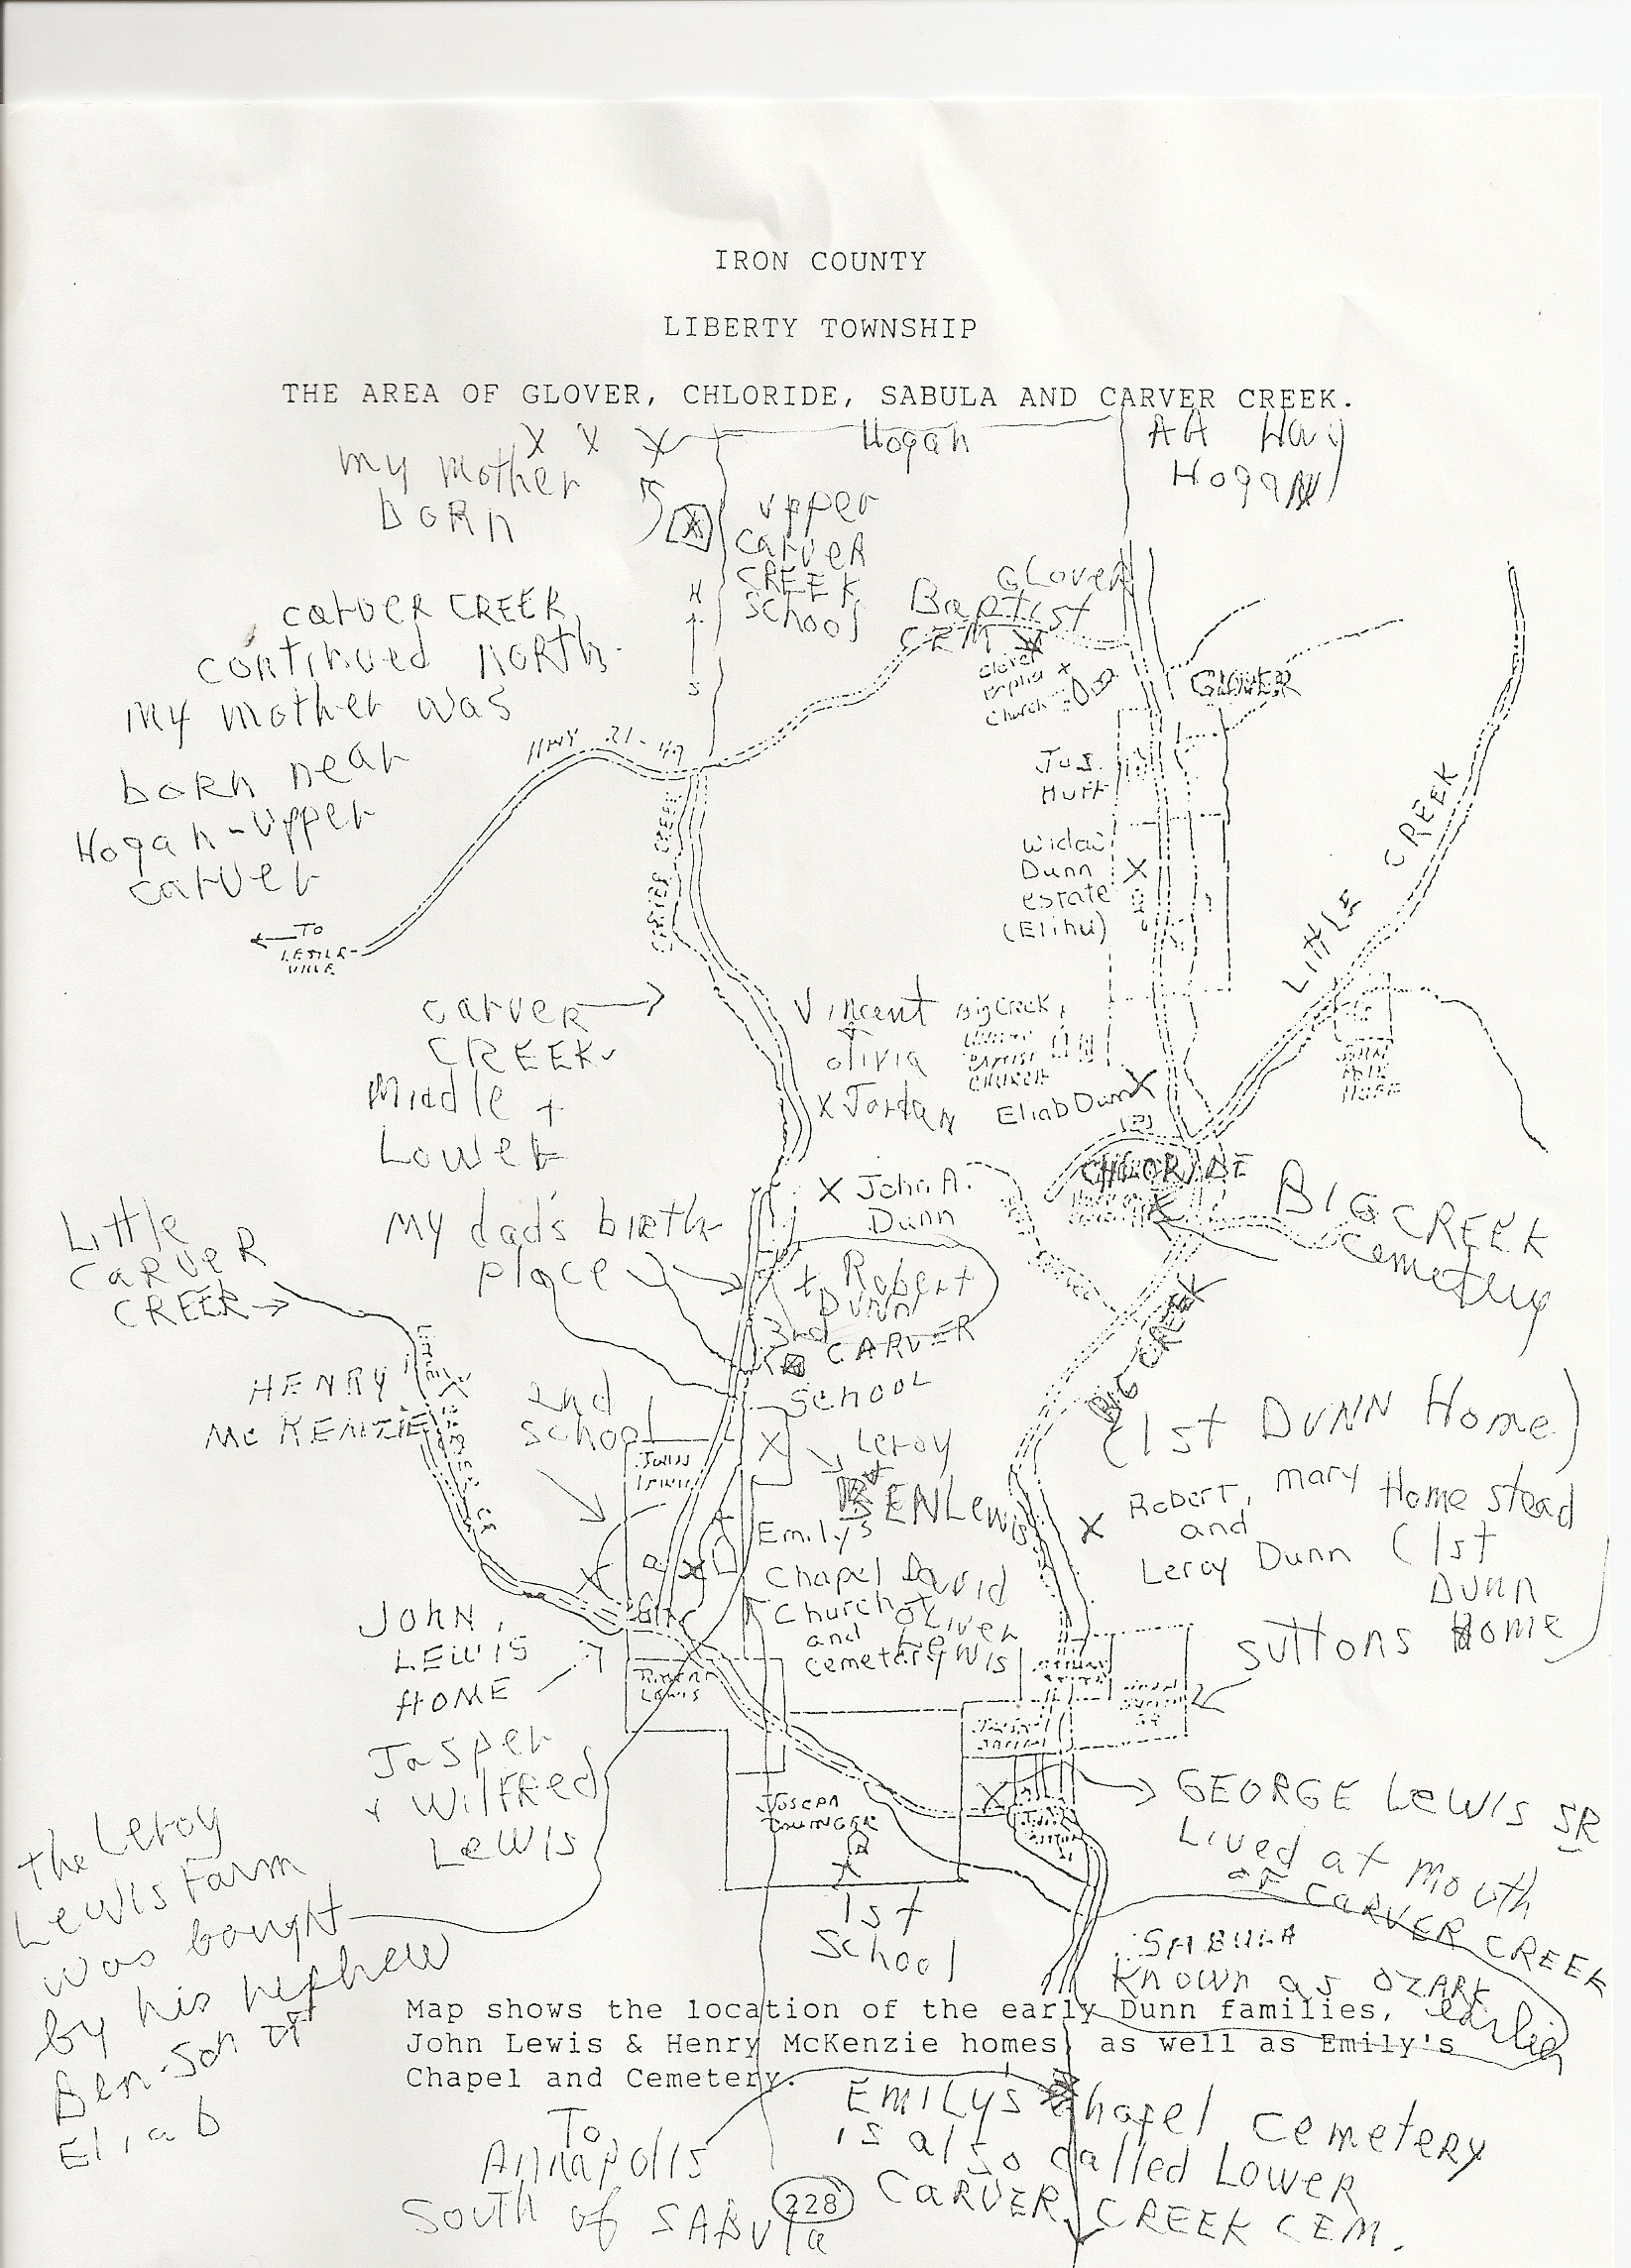 IRON COUNTY
LIBERTY TOWNSHIP
THE AREA OF GLOVER, CHLORIDE, SABULA AND CARVER CREEK.
X X X
Hogan
AA Hwy
Hogan
my mother
BORN
Upper
CARVER
CREEK
School
N
S
GLover
Baptist
CEM
Church
GLOVER
CARVER CREEK
continued NORTH.
My mother was
born near
Hogan-Upper
carver
HWY 21-49
Jos.
Huff
Widow
Dunn
estate
(Elihu)
X
LITTLE CREEK
CARVER CREEK
TO
LESTER-
VILLE
carver
CREEK
Middle +
Lower
Vincent
+
Olivia
X Jordan
Big Creek
BAPTIST
CHURCH
Eliab Dunn X
CHLORIDE
X John A.
Dunn
BIG CREEK
Cemetery
Little
CARVER
CREEK
My dad's birth
place
+ Robert
Dunn
3rd
CARVER
School
BIG CREEK
HENRY
McKENZIE
2nd
School
JOHN
LEWIS
X
Leroy
+
BEN Lewis
(1st DUNN Home)
X Robert, Mary
and
Leroy Dunn
Home stead
(1st
Dunn
Home
Emily's
Chapel
Church
and
cemetery
David
Oliver
Lewis
JOHN
LEWIS
HOME
Jasper
+ Wilfred
Lewis
LEWIS
suttons
JOSEPH
X
1st
School
GEORGE LEWIS SR
Lived at mouth
of CARVER CREEK
The Leroy
Lewis Farm
was bought
by his nephew
Ben-son of
Eliab
SABULA
Known as OZARK
earlier
Map shows the location of the early Dunn families,
John Lewis & Henry McKenzie homes, as well as Emily's
Chapel and Cemetery.
EMILY's Chapel Cemetery
is also called Lower
CARVER CREEK CEM.
To
Annapolis
South of SABULA
228